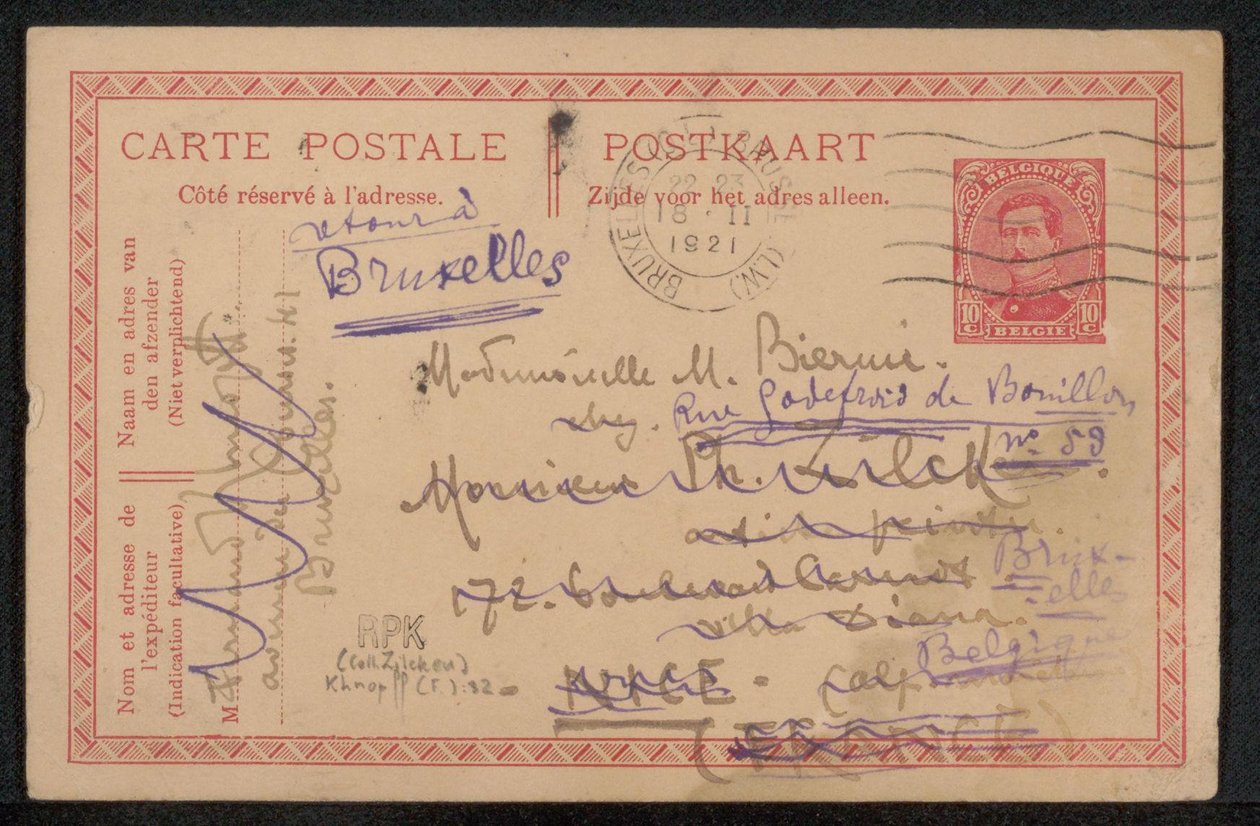 CARTE POSTALE
Côté réservé à l'adresse.
POSTKAART
Zijde voor het adres alleen.
BRUXELLES
22-23
18 · II
1921
BRUSSEL (I.W.)
BELGIQUE
10 C
10 C
BELGIE
Naam en adres van
den afzender
(Niet verplichtend)
Nom et adresse de
l'expéditeur
(Indication facultative)
M
Fernand Khnopff.
avenue des Courses. 41
Bruxelles.
retour à
Bruxelles
Mademoiselle M. Biermé.
chez. Rue Godefroid de Bouillon
n° 59
Monsieur Ph. Zilcken.
artiste peintre.
72. boulevard Carnot
villa Diana.
Brux-
elles
NICE - (alp.
Belgique
(FRANCE)
RPK
(coll. Zilcken)
Khnopff (F.): 32